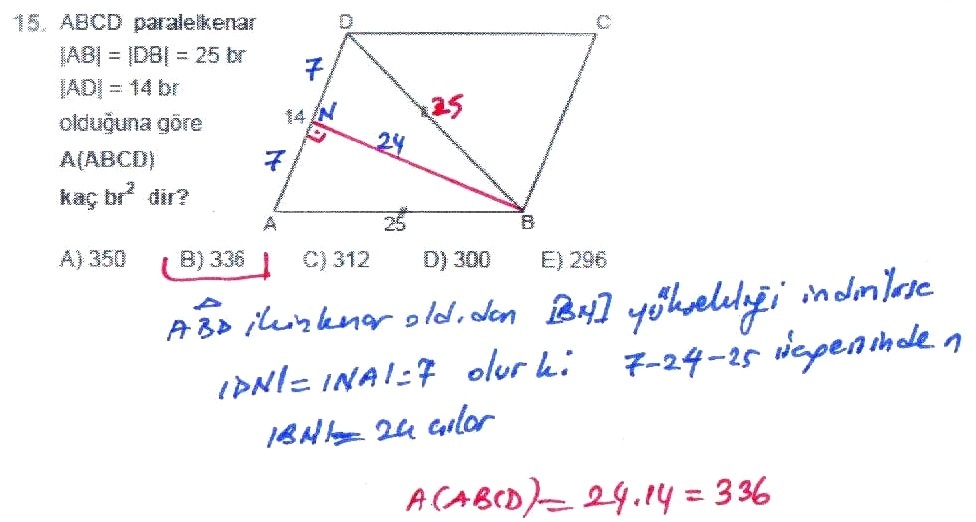 15. ABCD paralelkenar
|AB| = |DB| = 25 br
|AD| = 14 br
olduğuna göre
A(ABCD)
kaç br² dir?
D C
7
25
14 N
24
7
A 25 B
A) 350 B) 336 C) 312 D) 300 E) 296
ABD ikizkenar old.dan [BN] yüksekliği indirilirse
|DN| = |NA| = 7 olur ki 7-24-25 üçgeninden
|BN| = 24 çıkar
A(ABCD) = 24.14 = 336